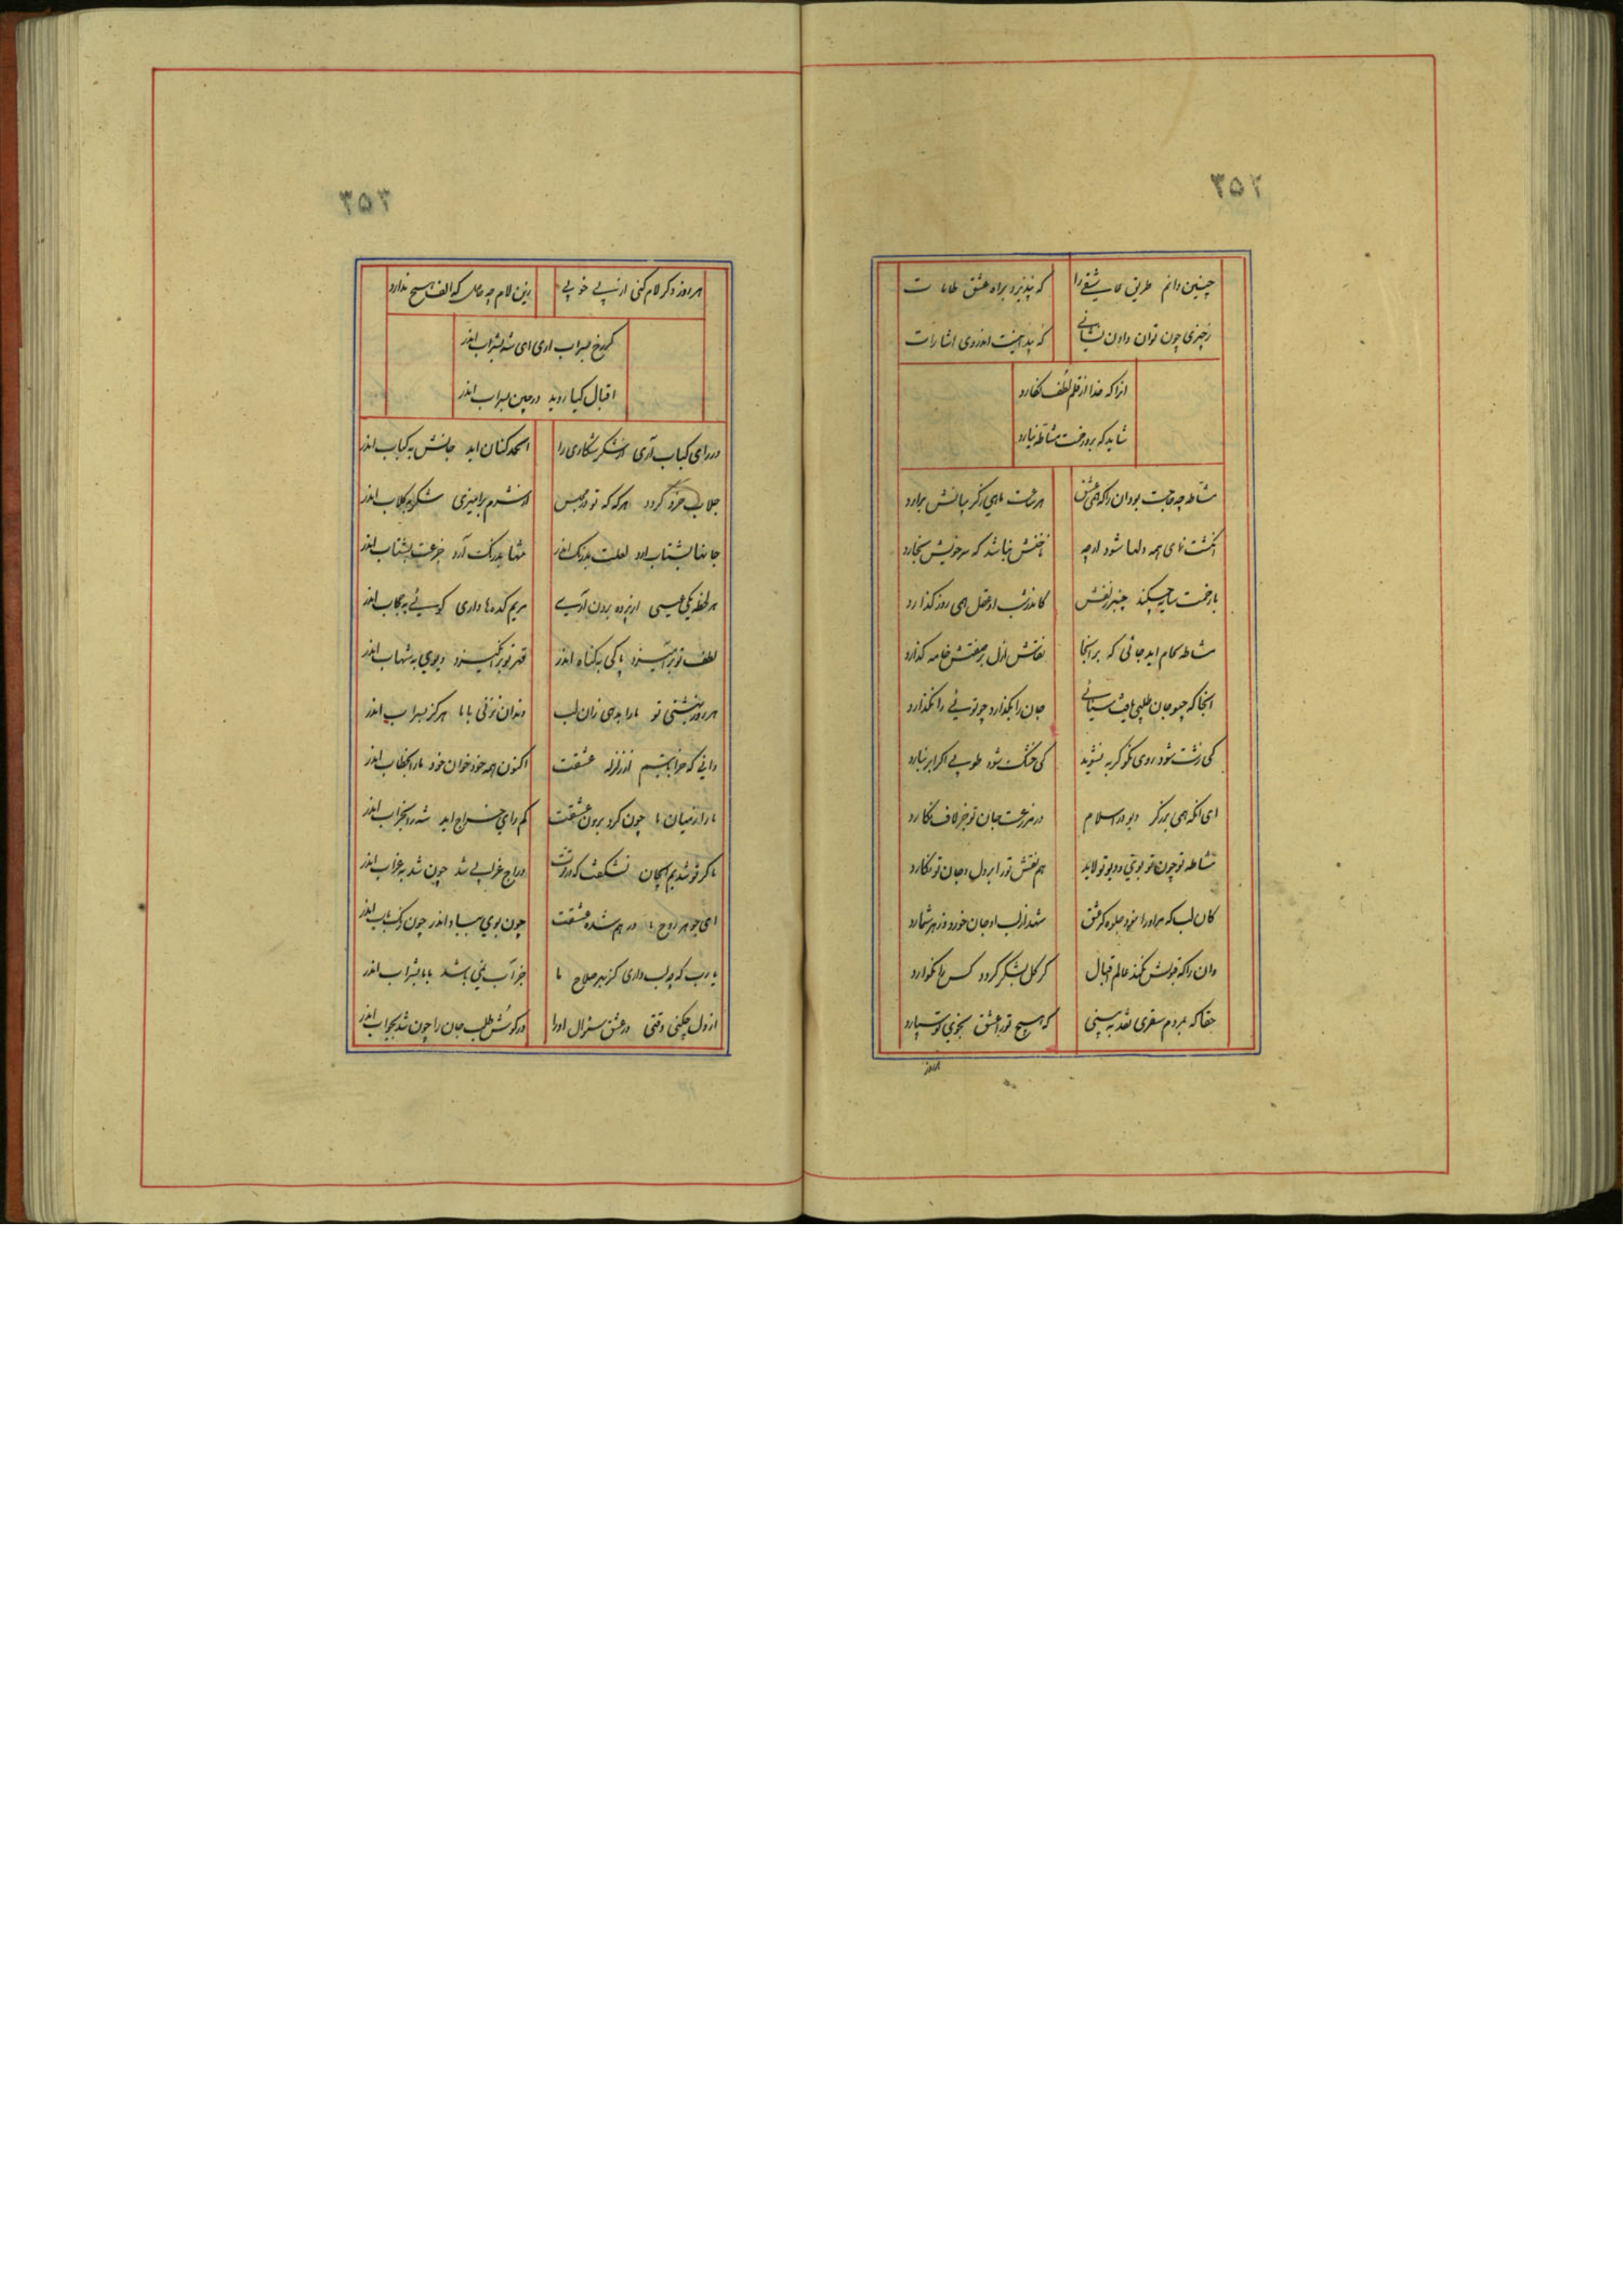 ۳۵۲
چنین دانم طریق عاشقی را که نپذیرد براه عشق طامات
زچیزی چون توان دادن نشانی که پیدا نیست اندر وی اشارات
انرا که خدا از قلم لطف نگارد
شاید که برو زحمت مشاطه نیارد
مشاطه چه حاجت بود ان را که همی عشق هر ساعت ماهی زگریبانش برارد
انگشت نمای همه دلها شود ار چه ناخنش نباشد که سر خویش بخارد
کاندر شب او عقل همی روز گذارد
مشاطه نقاش ازل بر صفتش خامه گذارد
انجا که چو جان طلبی یافت سنائی جان را بگذارد چو توئی را نگذارد
کی زشت شود روی نکو گر به نشوید کی خشک شود طوبی اگر ابر نبارد
ای انکه همی در اسلام در مزرعت جان تو جز لاف نکارد
مشاطه تو چون تو بوی دیو تو لابد هم نقش تو را بر دل و جان تو نگارد
کان لب که مر او را بخود جلوه کر عشق شهد از لب او جان خورد و زهر شمارد
وان را که قبولش نکند عالم اقبال گر گل بشکر گردد کس را نگوارد
حقا که بمردم سفری نقد به بینی که هیچ تو را عشق بخوی تو سپارد
هر روز
۳۵۳
هر روز دگر لام کنی از پی خوبی زین لام چه حاصل که الف هیچ ندارد
گر رخ بسراب اری ای شه بشراب اندر
اقبال گیا روید در عین سراب اندر
ور رای کباب آری از شکر شکاری را الحمد کنان اید جانش به کباب اندر
جلاب خرد گردد هر گه که تو در مجلس از شرم برامیزی شکر به گلاب اندر
جانها بشتاب ارد لعلت بدرنگ اندر تنها بدرنگ آرد جزعت بشتاب اندر
هر لحظه یکی عیسی از پرده برون اری مریم کده ها داری گوئی به حجاب اندر
لطف تو برآمیزد پاکی به گناه اندر قهر تو برانگیزد دیوی به شهاب اندر
هر روز بهشتی نو ما را بدهی زان لب دندان نزنی با ما هرگز بسراب اندر
دانی که خراباتیم از زلزله عشقت اکنون همه خود خوان خود ما را بخطاب اندر
ما را ز میان ما چون کرد برون عشقت کم رای خراج اید شه را بخراب اندر
ما گر تو شدیم ای جان نشگفت که از قوت دراج عقابی شد چون شد به غراب اندر
ای جوهر روح ما در هم شده عشقت چون بوی بباد اندر چون رنگ به اب اندر
یا رب که چه لب داری کز بهر صلاح ما جز آب نمی باشد با ما بشراب اندر
از دل چکنی وقتی در عشق سوال او را در گوش طلب جان را چون شد بجواب اندر